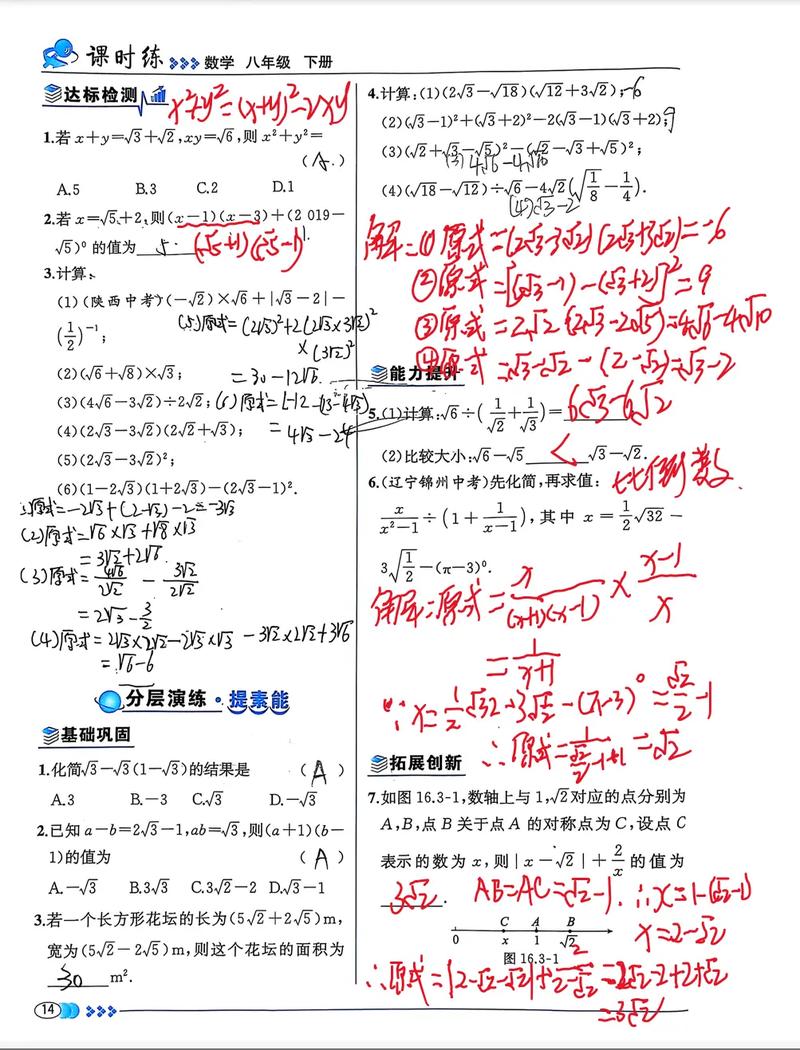 课时练 >>>> 数学 八年级 下册
达标检测
x²+y²=(x+y)²-2xy
1.若 x+y=√3+√2,xy=√6,则 x²+y²=
(A.)
A.5 B.3 C.2 D.1
2.若 x=√5+2,则(x-1)(x-3)+(2 019-
√5)⁰ 的值为 5.
(√5+1)(√5-1)
3.计算:
(1)(陕西中考)(-√2)×√6+|√3-2|-
(1/2)⁻¹;
(5)原式=(2√3)²+2(2√3×3√2)²
×(3√2)²
=30-12√6
(2)(√6+√8)×√3;
(3)(4√6-3√2)÷2√2;
(6)原式=1-12-(13-4√3)
=4√3-24
(4)(2√3-3√2)(2√2+√3);
(5)(2√3-3√2)²;
(6)(1-2√3)(1+2√3)-(2√3-1)².
原式=-2√3+(2-√3)-2=-3√3
(2)原式=√6×√3+√8×√3
=3√2+2√6
(3)原式=4√6/2√2-3√2/2√2
=2√3-3/2
(4)原式=2√3×2√2-2√3×√3-3√2×2√2+3√6
=√6-6
分层演练·提素能
基础巩固
1.化简√3-√3(1-√3)的结果是 (A)
A.3 B.-3 C.√3 D.-√3
2.已知 a-b=2√3-1,ab=√3,则(a+1)(b-
1)的值为 (A)
A.-√3 B.3√3 C.3√2-2 D.√3-1
3.若一个长方形花坛的长为(5√2+2√5)m,
宽为(5√2-2√5)m,则这个花坛的面积为
30 m².
14 >>>
4.计算:(1)(2√3-√18)(√12+3√2);-6
(2)(√3-1)²+(√3+2)²-2(√3-1)(√3+2);9
(3)(√2+√3-√5)²-(√2-√3+√5)²;
(3)4√6-4√10
(4)(√18-√12)÷√6-4√2(√(1/8)-1/4).
(4)√3-2
解:①原式=(2√3-3√2)(2√3+3√2)=-6
②原式=[(√3-1)-(√3+2)]²=9
③原式=2√2(2√3-2√5)=4√6-4√10
④原式=√3-√2-(2-√2)=√3-2
能力提升
5.(1)计算:√6÷(1/√2+1/√3)=6√3-6√2
(2)比较大小:√6-√5 < √3-√2.
6.(辽宁锦州中考)先化简,再求值:
x/(x²-1)÷(1+1/(x-1)),其中 x=1/2√32-
3√(1/2)-(π-3)⁰.
解:原式=x/(x+1)(x-1)×(x-1)/x
=1/(x+1)
∵x=1/2√32-3√(1/2)-(π-3)⁰=√2/2-1
∴原式=1/(√2/2-1+1)=√2
拓展创新
7.如图16.3-1,数轴上与1,√2对应的点分别为
A,B,点B关于点A的对称点为C,设点C
表示的数为 x,则|x-√2|+2/x 的值为
3√2. AB=AC=√2-1.∴x=1-(√2-1)
x=2-√2
C A B
0 x 1 √2
图 16.3-1
∴原式=|2-√2-√2|+2/(2-√2)=2√2-2+2+√2
=3√2